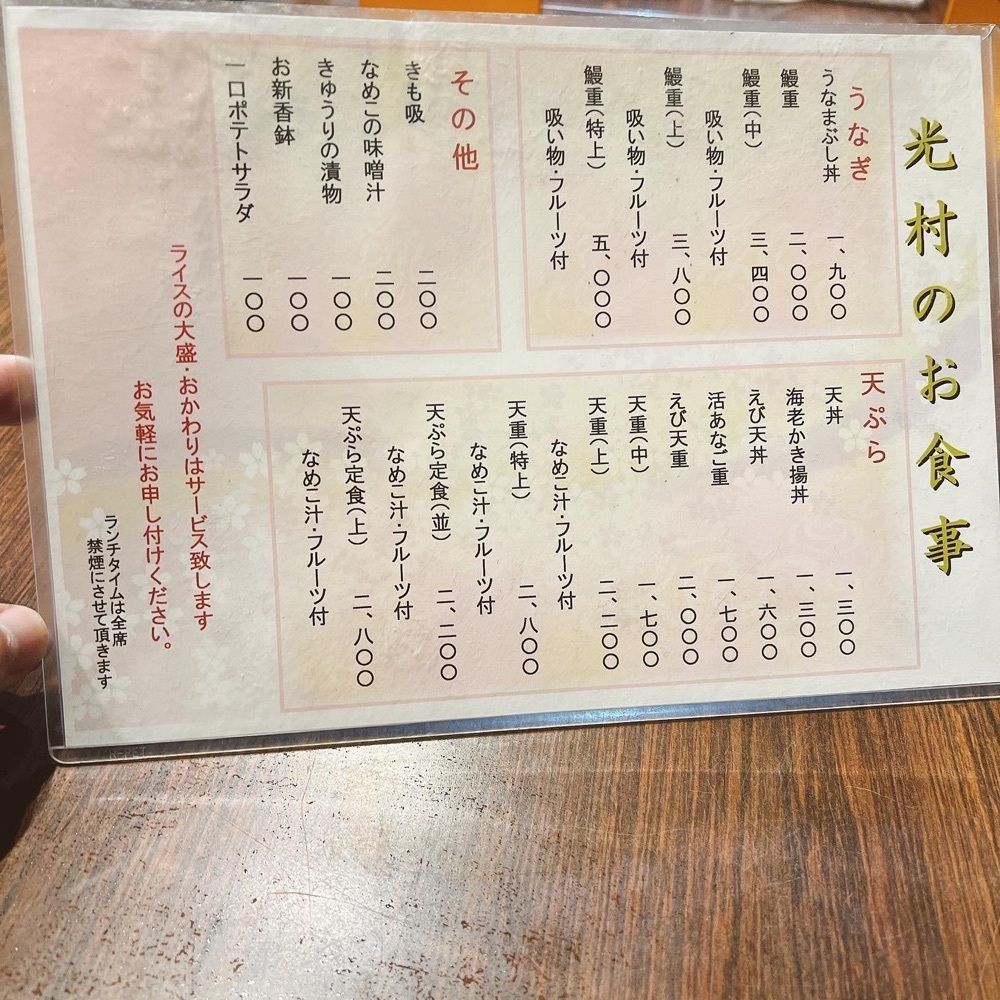 光村のお食事
うなぎ
うなまぶし丼 一、九〇〇
鰻重 二、〇〇〇
鰻重（中） 三、四〇〇
吸い物・フルーツ付
鰻重（上） 三、八〇〇
吸い物・フルーツ付
鰻重（特上） 五、〇〇〇
吸い物・フルーツ付
その他
きも吸 二〇〇
なめこの味噌汁 二〇〇
きゅうりの漬物 一〇〇
お新香鉢 一〇〇
一口ポテトサラダ 一〇〇
天ぷら
天丼 一、三〇〇
海老かき揚丼 一、三〇〇
えび天丼 一、六〇〇
活あなご重 一、七〇〇
えび天重 二、〇〇〇
天重（中） 一、七〇〇
天重（上） 二、二〇〇
なめこ汁・フルーツ付
天重（特上） 二、八〇〇
なめこ汁・フルーツ付
天ぷら定食（並） 二、二〇〇
なめこ汁・フルーツ付
天ぷら定食（上） 二、八〇〇
なめこ汁・フルーツ付
ライスの大盛・おかわりはサービス致します
お気軽にお申し付けください。
ランチタイムは全席
禁煙にさせて頂きます